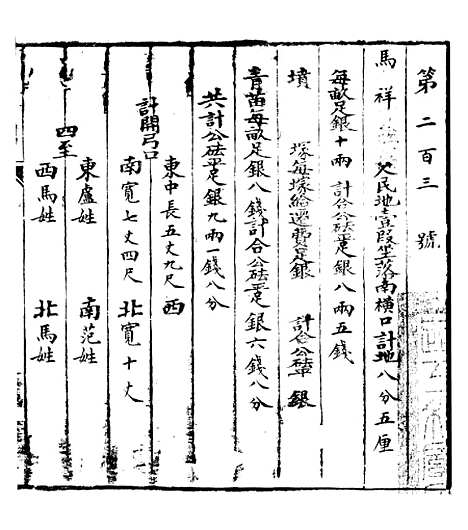 第二百三號
馬祥 民地壹段坐落南橫口計地八分五厘
每畝足銀十兩 計合公砝足銀八兩五錢
墳 塚每塚給遷費足銀 計合公砝平 銀
青苗每畝足銀八錢計合公砝足銀六錢八分
共計公砝足銀九兩一錢八分
計開弓口
東中長五丈九尺 西
南寬七丈四尺 北寬十丈
四至
東盧姓 南范姓
西馬姓 北馬姓